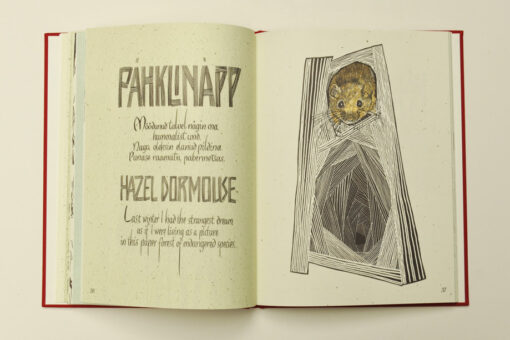 PÄHKLINÄPP
Möödunud talvel nägin ma
kummalist und.
Nagu oleksin elanud pildina
Punase raamatu, pabermetsas.
HAZEL DORMOUSE
Last winter I had the strangest dream
as if I were living as a picture
in this paper forest of endangered species.
37